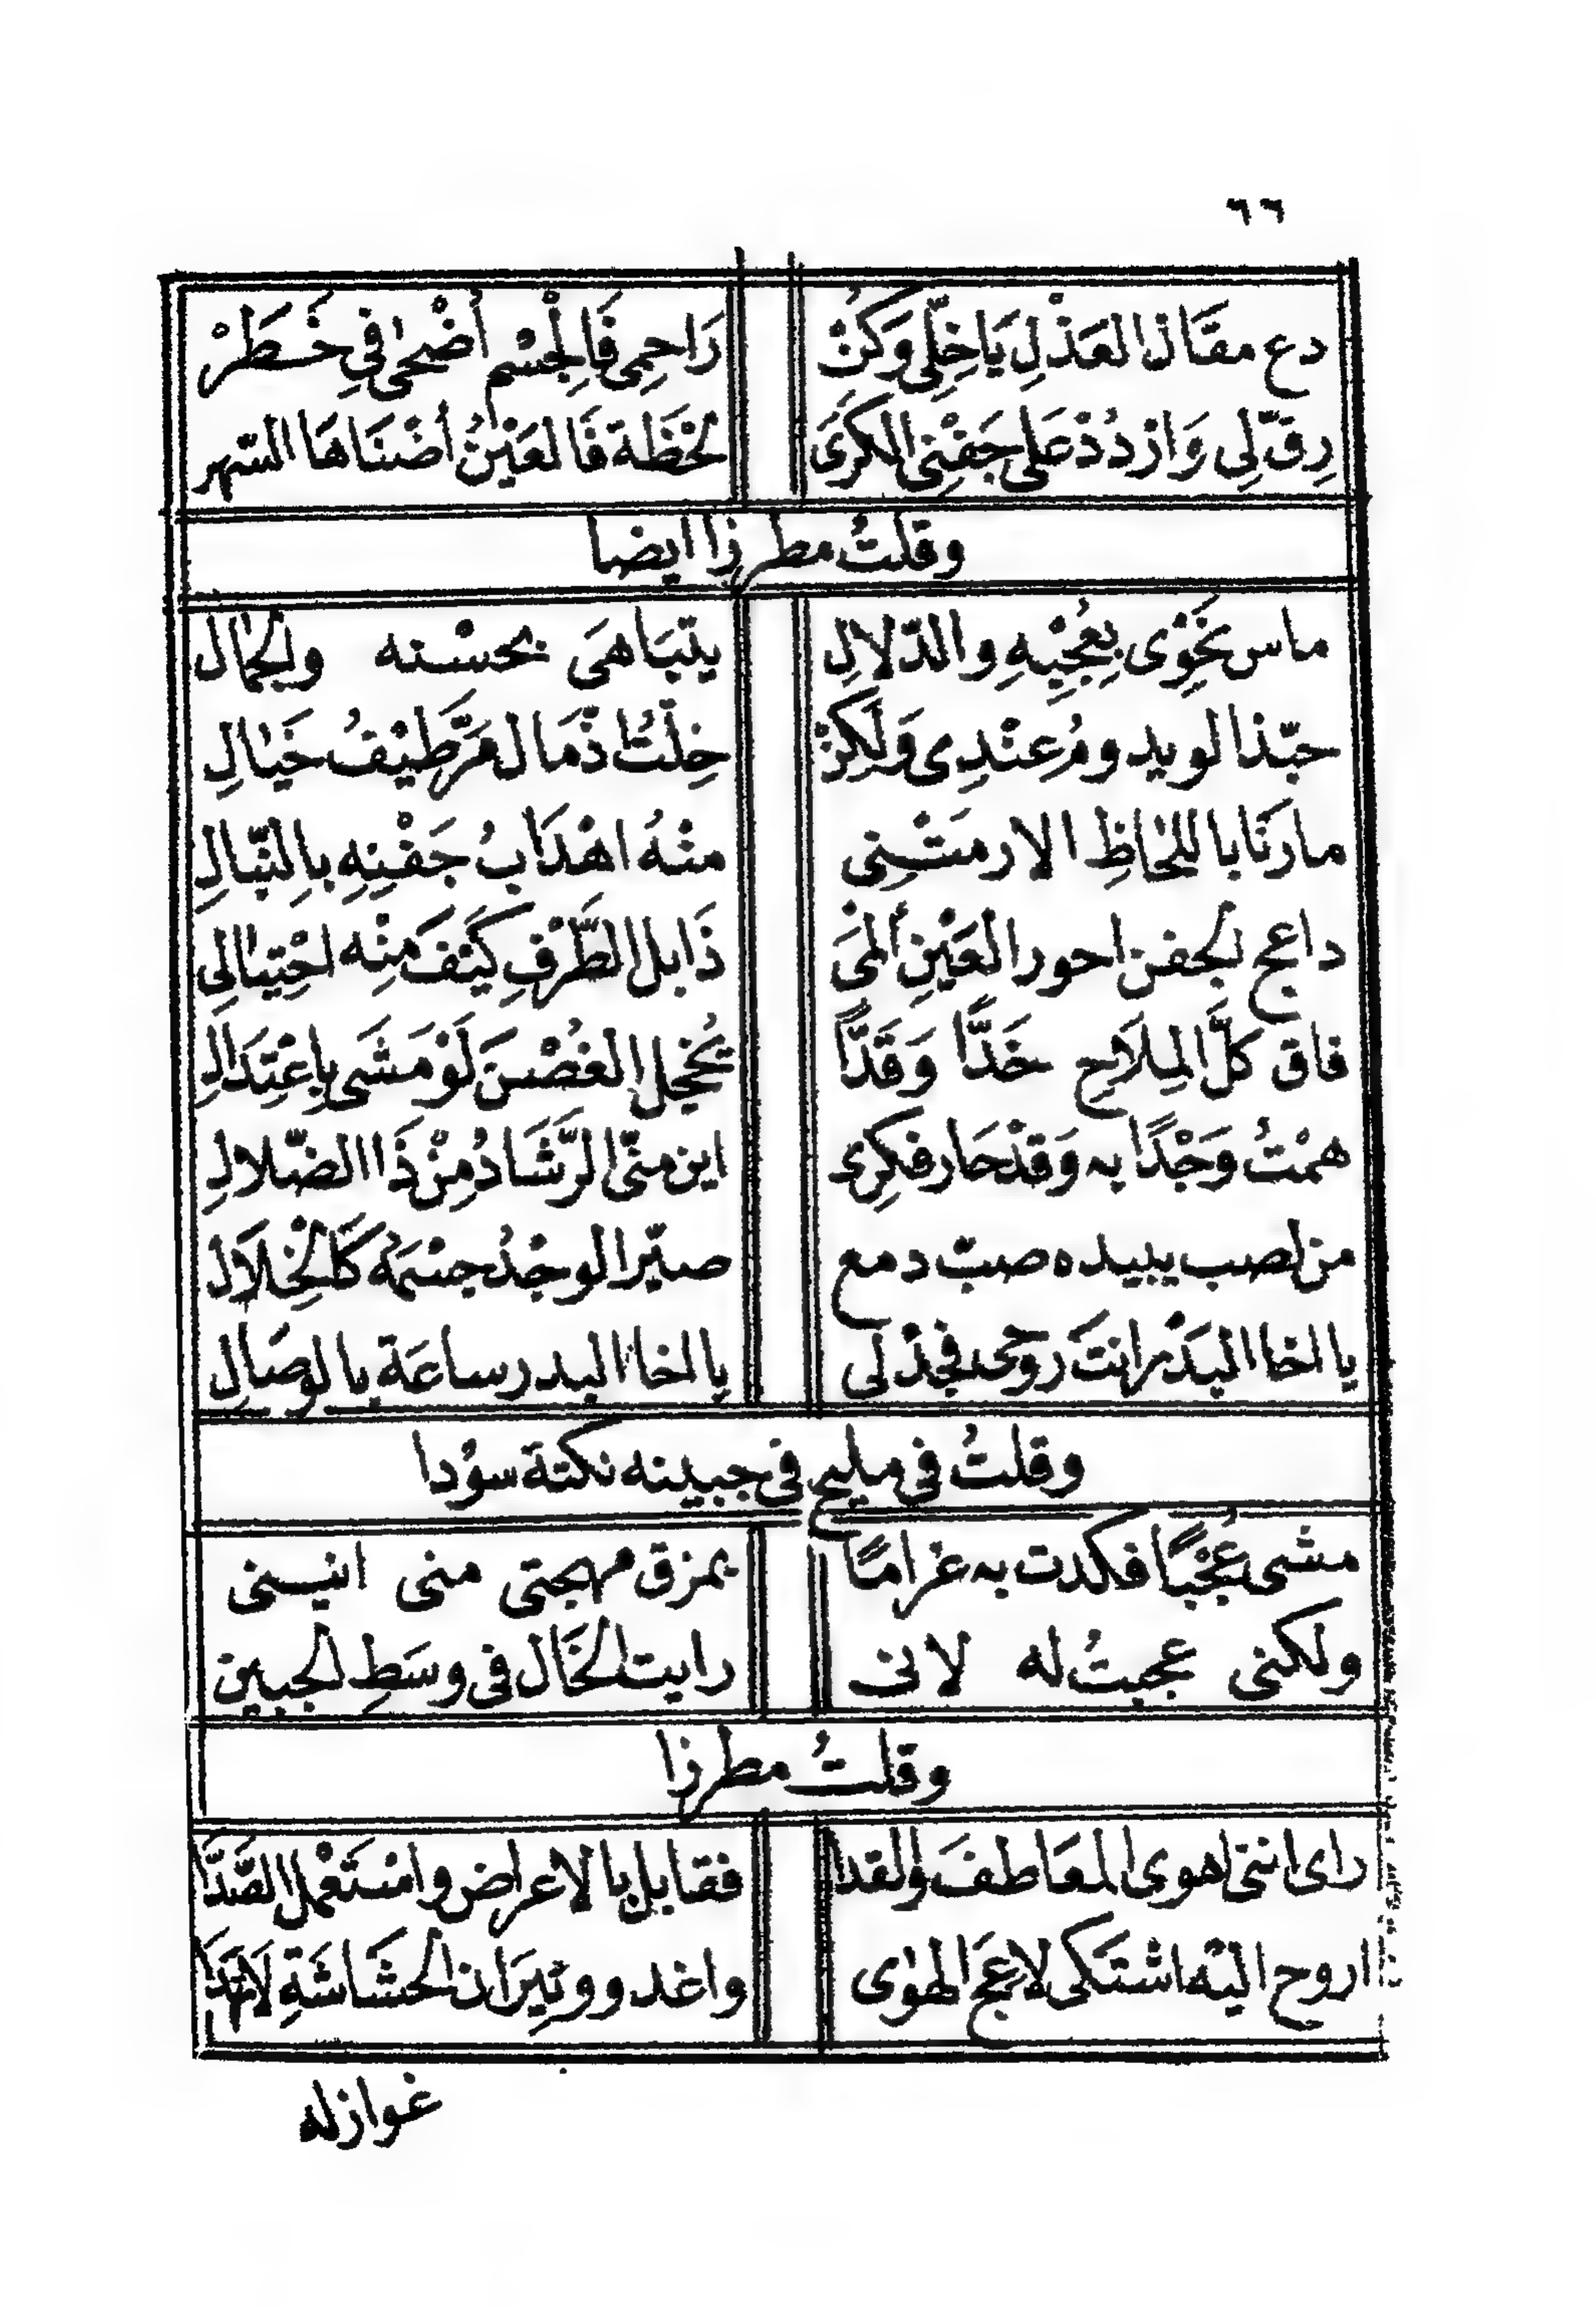 ٦٦
دع مقَال العَذْلِ يَا خِلِّي وَكُنْ رَاحِمِى فَالِجْسْم أَضْحىٰ فِي خَطَرْ
رِقّ لِي وَازْدُدْ عَلى جَفْنِى الكَرَىَ لَحْظَة فَالعَيْنُ أضْنَاهَا السّهر
وقلتُ مطرزا ايضا
ماس نَحْوِى بِعُجْبِهِ والدّلالِ يتبَاهىَ بحسْنه والجمَال
حبّذا لو يدومُ عنْدِى وَلَكِنْ خِلْتُ اذْ مَال مَرَّ طيْفُ خَيالِ
مارنَا باللحَاظِ الا رمَتْنِى منْهُ اهْدَابُ جَفْنِهِ بالنّبالِ
داعج الجفن احور العَيْنِ ألمَى ذَابل الطَّرْفِ كَيْفَ مِنْه احْتِيالِى
فاق كلَّ المِلَاحِ خَدًّا وَقَدًّا يُخْجِل الغُصْنَ لَوْ مَشَى بِإعْتِدَالِ
همْتُ وَجْدًا به وَقدْ حَار فكرِى اين منّى الرَّشَادُ مِنْ ذَا الضّلالِ
من لصب يبيده صبّ دمع صيّر الوجْدُ جسْمَهُ كَالْخِلَال
يا اخا البَدْر انتَ روحى فجُدْ لى يا اخا البدر ساعَة بالوصَالِ
وقلتُ فى مليح فى جبينه نكتة سوْدا
مشى عُجْبًا فكدت به غرامًا بمزق مهجتى منى انيسنى
ولكنى عجبتُ له لانى رايت الخَال فى وسَطِ الجبين
وقلتُ مطرزا
راى اننى اهوى المعَاطفَ والقدا فقابل بالاعراض واسْتَعْمل الصَّدَّا
اروح اليْه اشتَكى لاعِجَ الهوٰى واغدو ونِيرَان الحشَاشَةِ لَا تهْدَا
غوازله